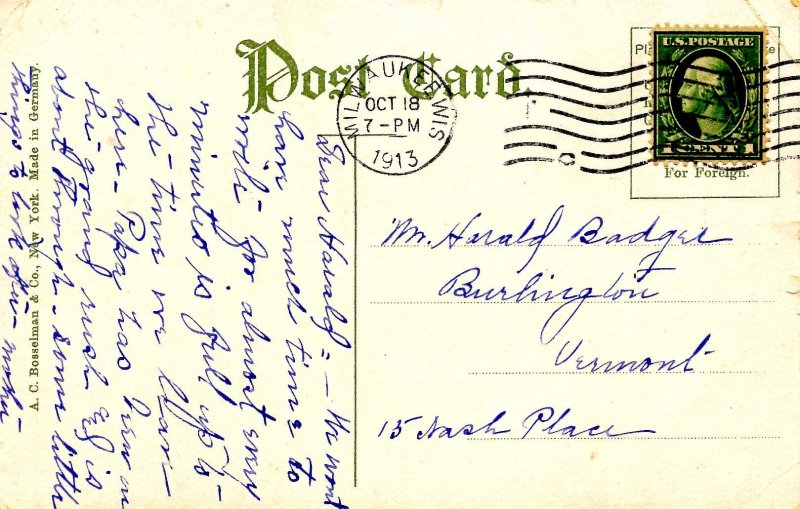 Post Card.
MILWAUKEE WIS
OCT 18
7-PM
1913
U.S. POSTAGE
CENT 1
For Foreign.
Mr. Harald Badger
Burlington
Vermont
15 Nash Place
Dear Harald = — We wont
have much time to
write - for almost every
minutes is full up
the time we leave
here - Papa has been on
the grand rush & is
about through - some little
things to look after - mother -
A. C. Bosselman & Co., New York. Made in Germany.